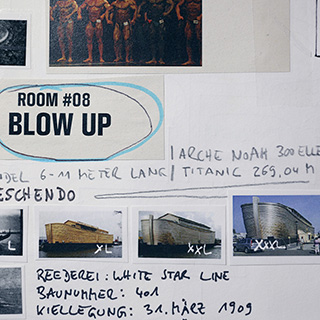 ROOM #08
BLOW UP
| ARCHE NOAH 300 ELLE
NDEL 6-11 METER LANG / TITANIC 269,04 M
ESCHENDO
L
XL
XXL
XXXL
REEDEREI: WHITE STAR LINE
BAUNUMMER: 401
KIELLEGUNG: 31. MÄRZ 1909